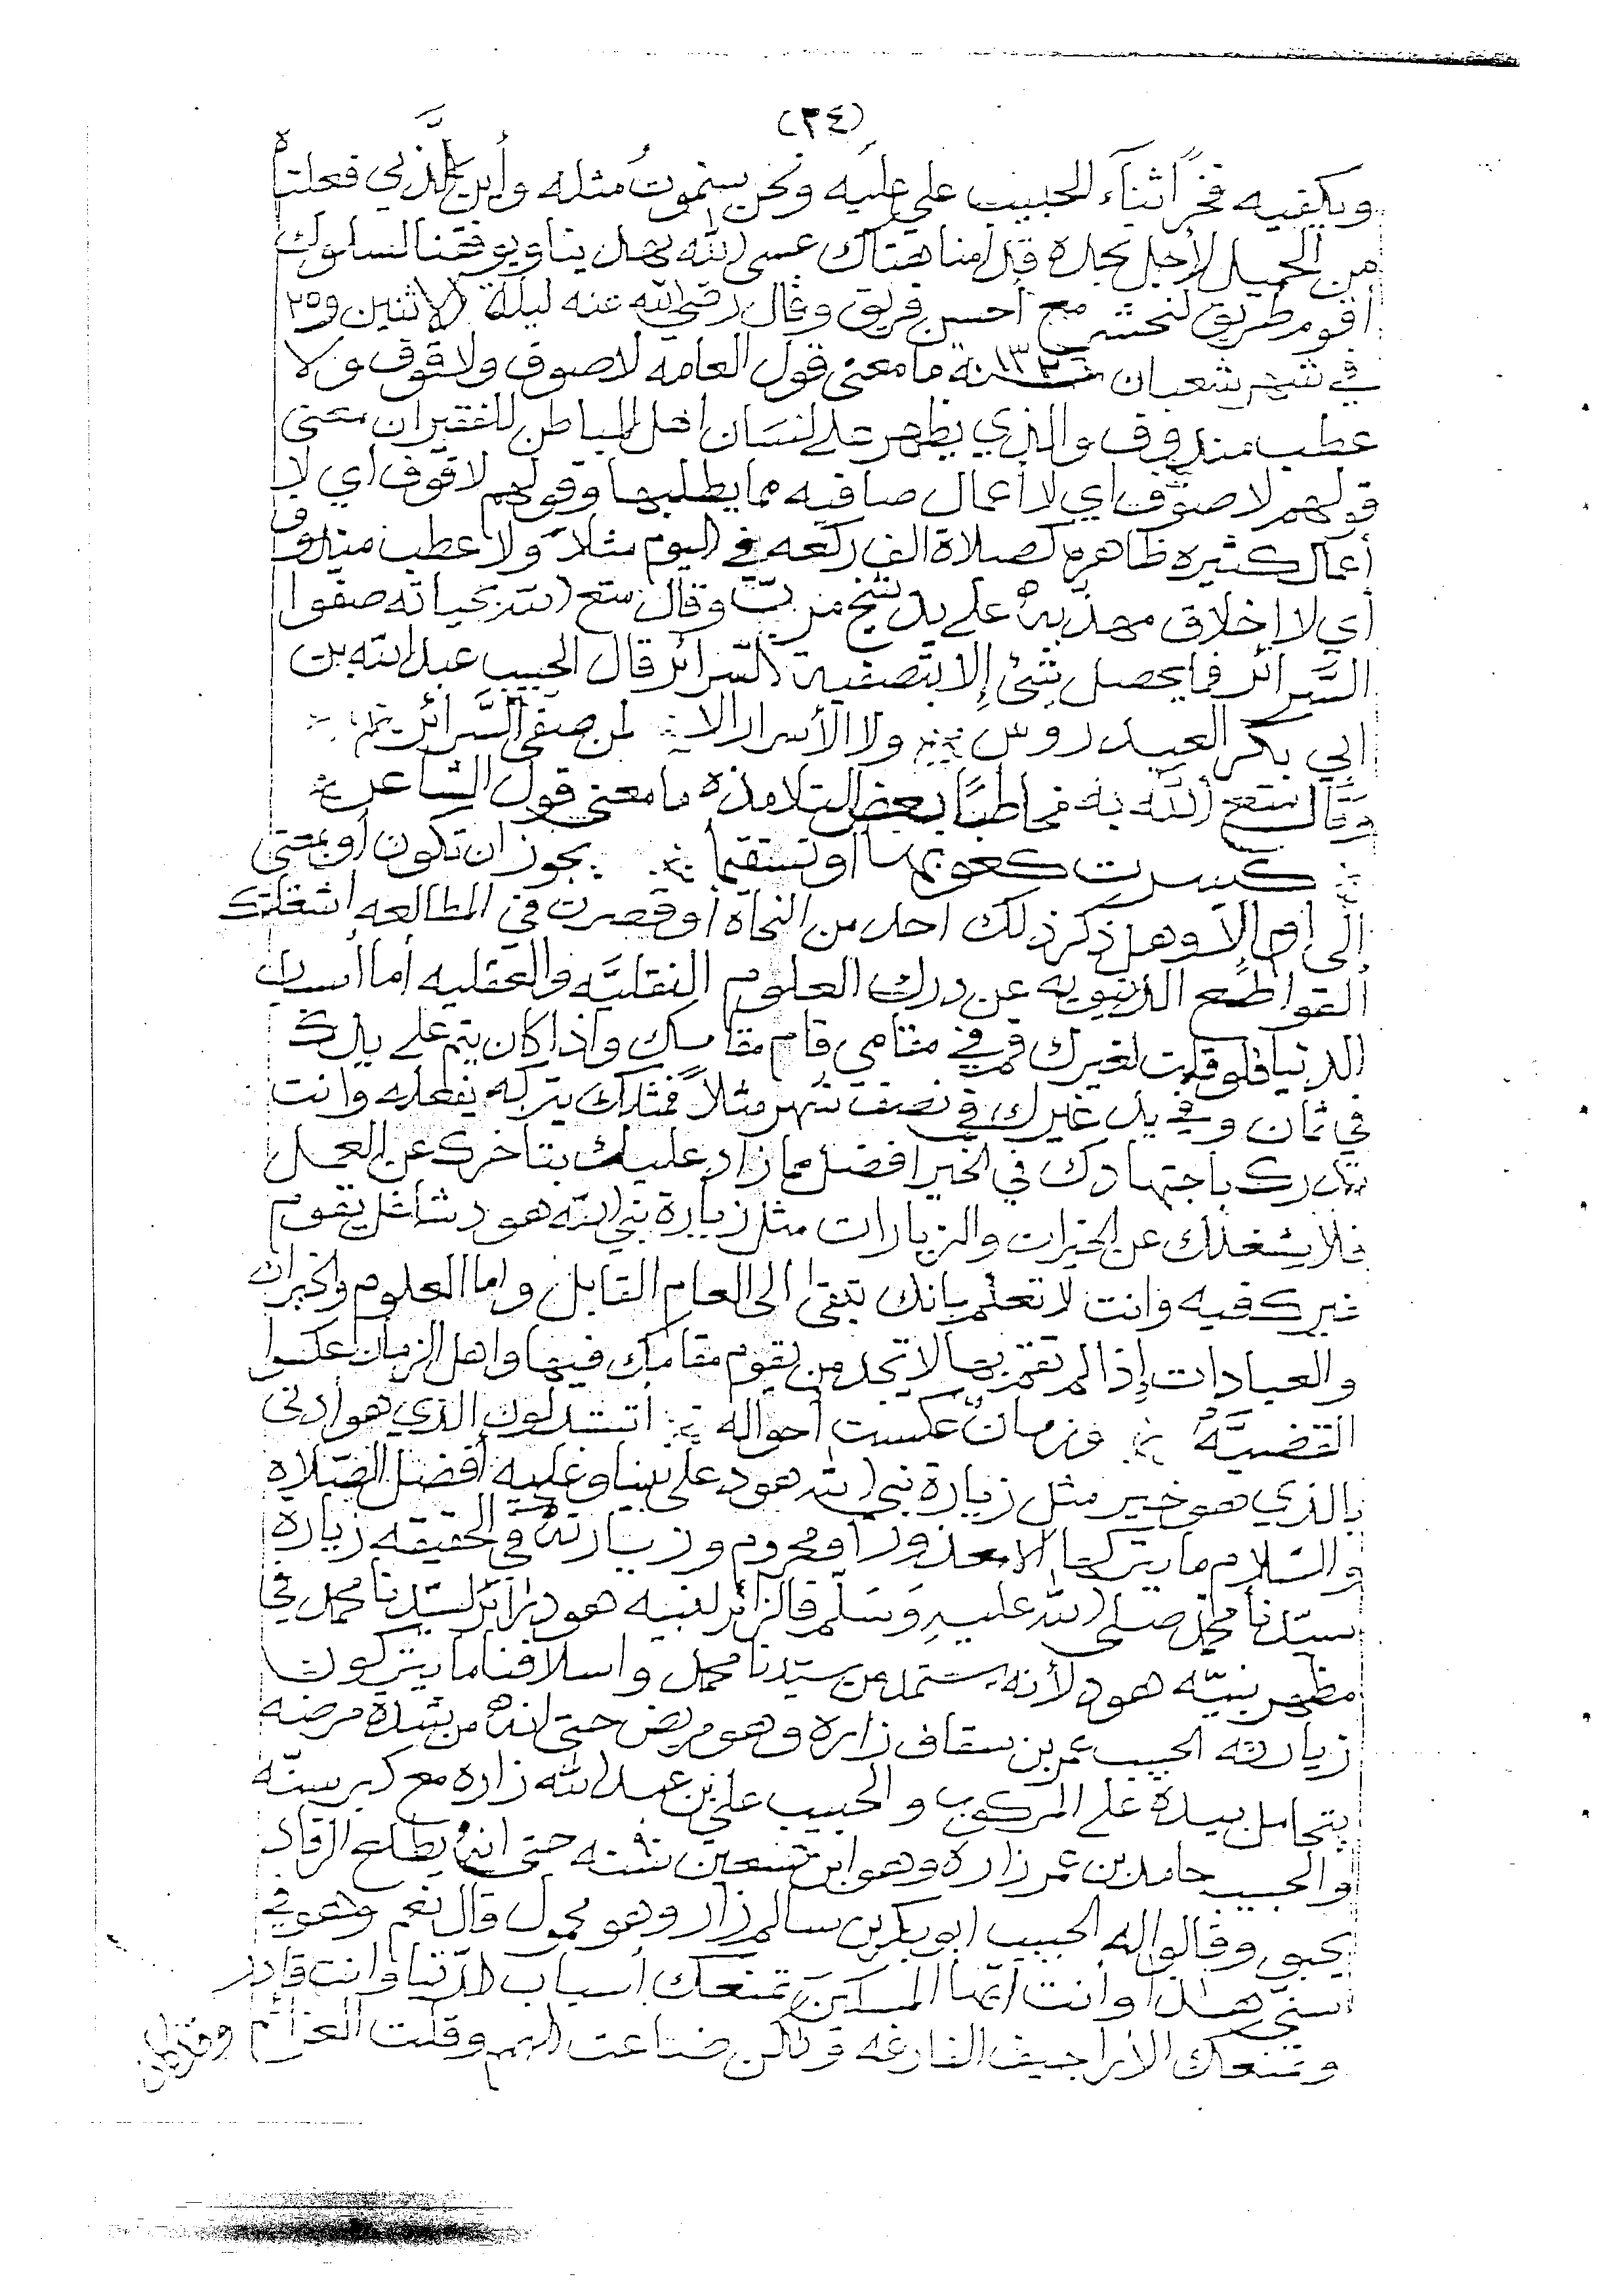 (٣٤)
ويكفيه فخرًا ثناء الحبيب علي عليه ونحن بسنموت مثله وأين الذي فعلناه
من الجميل لأجل نجده قدامنا هناك عسى الله يهدينا ويوفقنا لسلوك
أقوم طريق لنحشر مع أحسن فريق وقال رضي الله عنه ليلة الاثنين و٢٥
في شهر شعبان سنة ما معنى قول العامه لا صوف ولا قوف ولا
عطب مندوف والذي يظهر على لسان اهل الباطن للفقير ان معنى
قولهم لا صوف اي لا أعمال صافيه مما يطلبها وقولهم لا قوف اي لا
أعمال كثيره ظاهره كصلاة الف ركعه في اليوم مثلاً ولا عطب مندوف
أي لا إخلاق مهذبة على يد شيخ مربّ وقال متع الله بحياته صفوا
السَّرائر فما يحصل شئ إلا بتصفية السّرائر قال الحبيب عبد الله بن
ابي بكر العيدروس ولا الأسرار الا لمن صفى السَّرائر
وقال متع الله به مخاطبًا بعض التلامذه ما معنى قول الشاعر
كسرت كعوبها او تستقيما يجوز ان تكون أو بمعنى
الى او إلا وهل ذكر ذلك احد من النحاة أو قصرت في المطالعه اشغلتك
القواطع الدنيويه عن درك العلوم النقليَّه والعقليه أما أسباب
الدنيا فلو قلت لغيرك قم في مقامي قام مقامك واذا كان يتم على يدك
في ثمان وفي يد غيرك في نصف شهر مثلاً فمثلك يتركه يفعله وانت
تدرك باجتهادك في الخير افضل مما زاد عليك بتاخرك عن العمل
فلا يشغلك عن الخيرات والزيارات مثل زيارة نبي الله هود شاغل يقوم
غيرك فيه وانت لا تعلم بانك تبقى الى العام القابل واما العلوم والخيرات
والعبادات إذا لم تقم بها لا تجد من يقوم مقامك فيها واهل الزمان عكسوا
القضيَّة وزمان عكست أحواله اتستبدلون الذي هو أدنى
بالذي هو خير مثل زيارة نبي الله هود على نبينا وعليه أفضل الصّلاة
والسّلام ما يتركها إلا معذور أو محروم وزيارته في الحقيقه زيارة
سيّدنا محمد صلى الله عليه وَسَلَّم فالزائر لنبيه هود زائر لسيّدنا محمد في
مظهر نبيّه هود لأنه يستمد من سيّدنا محمد واسلافنا ما يتركون
زيارته الحبيب عمر بن سقاف زاره وهو مريض حتى انه من شدة مرضه
يتحامل بيده على المركوب والحبيب علي بن عبد الله زاره مع كبر سنّه
والحبيب حامد بن عمر زاره وهو ابن تسعين سنه حتى انه يطلع الرقاد
يحبو وقالوا له الحبيب ابو بكر بن سالم زار وهو محمول قال نعم وهو في
سنّي هذا وانت ايها المسكين تمنعك أسباب الدّنيا وانت قادر
وتمنعك الأراجيف الفارغه ولكن ضاعت الهمم وقلّت العزائم وقد كان